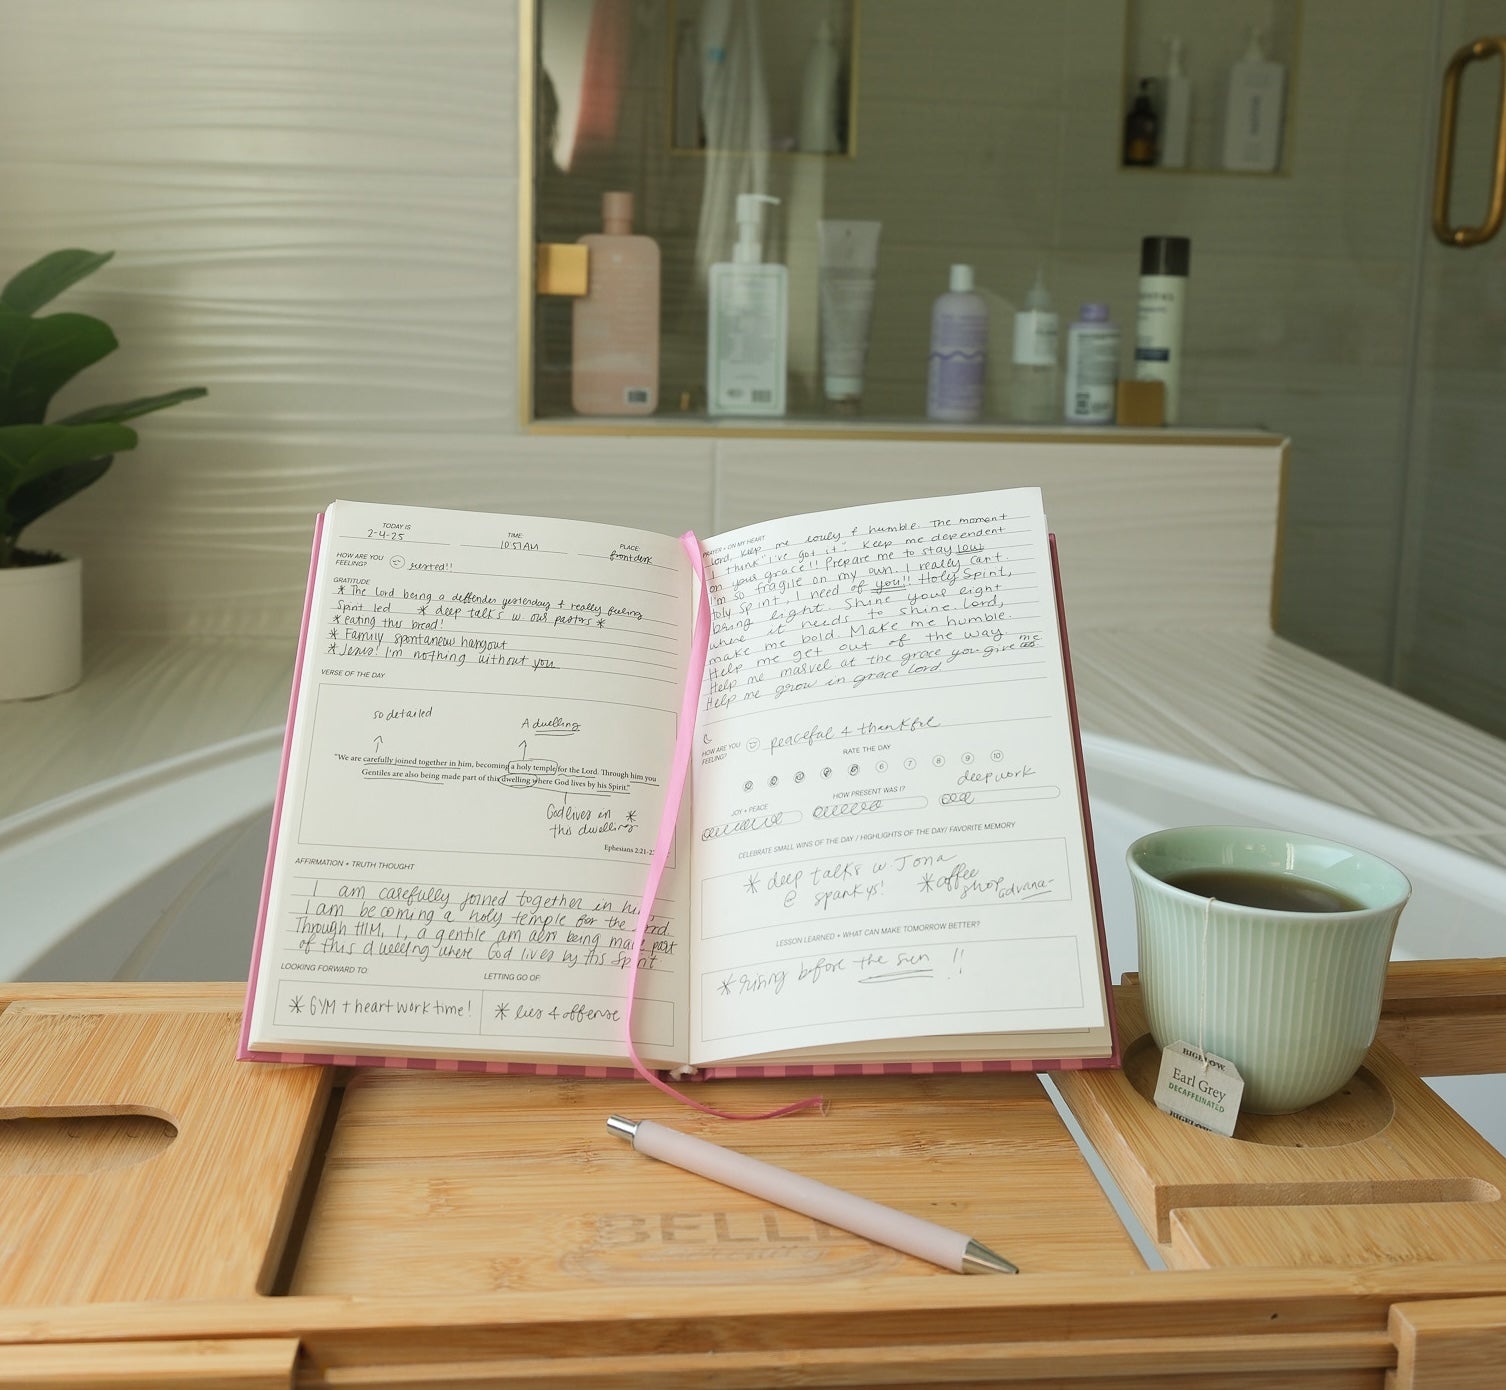 TODAY IS
2-4-25
TIME:
10:57AM
PLACE:
front desk
HOW ARE YOU
FEELING?
rested!!
GRATITUDE
* The Lord being a defender yesterday + really feeling
Spirit led * deep talks w our pastors *
* eating this bread!
* Family spontaneous hangout
* Jesus! I'm nothing without you
VERSE OF THE DAY
so detailed
A dwelling
"We are carefully joined together in him, becoming a holy temple for the Lord. Through him you
Gentiles are also being made part of this dwelling where God lives by his Spirit."
God lives in *
this dwelling
Ephesians 2:21-2
AFFIRMATION + TRUTH THOUGHT
I am carefully joined together in
I am becoming a holy temple for the Lord.
Through HIM, I, a gentile am also being made part
of this dwelling where God lives by his Spirit.
LOOKING FORWARD TO:
* GYM + heart work time!
LETTING GO OF:
* lies + offense
PRAYER + ON MY HEART
Lord, keep me lowly & humble. The moment
I think "I've got it". Keep me dependent
on your grace!! Prepare me to stay low
I'm so fragile on my own. I really can't.
Holy Spirit, I need of you!! Holy Spirit,
bring light. Shine your light
where it needs to shine. Lord,
make me bold. Make me humble.
Help me get out of the way
Help me marvel at the grace you give me
Help me grow in grace Lord
HOW ARE YOU
FEELING?
peaceful + thankful
RATE THE DAY
6 7 8 9 10
deep work
JOY + PEACE
HOW PRESENT WAS I?
CELEBRATE SMALL WINS OF THE DAY / HIGHLIGHTS OF THE DAY/ FAVORITE MEMORY
* deep talks w. Jona
@ spankys!
* coffee
shop
LESSON LEARNED + WHAT CAN MAKE TOMORROW BETTER?
* rising before the sun !!
BIGELOW
Earl Grey
DECAFFEINATED
BIGELOW
BELLE